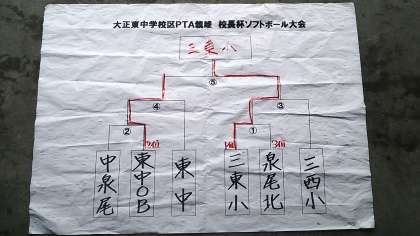 大正東中学校区PTA親睦 校長杯ソフトボール大会
三東小
⑤
④
③
②
①
中泉尾
東中OB
東中
三東小
泉尾北
三西小